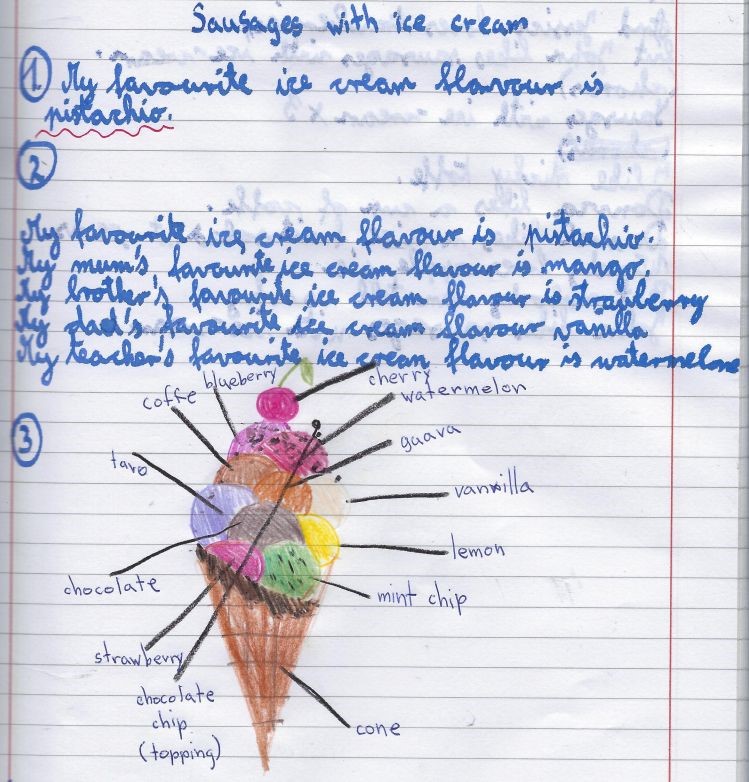 Sausages with ice cream
1 My favourite ice cream flavour is
pistachio.
2
My favourite ice cream flavour is pistachio.
My mum's favourite ice cream flavour is mango.
My brother's favourite ice cream flavour is strawberry
My dad's favourite ice cream flavour vanilla
My teacher's favourite ice cream flavour is watermelone
3
blueberry
cherry
coffe
watermelon
guava
taro
vanilla
lemon
chocolate
mint chip
strawberry
chocolate
chip
(topping)
cone